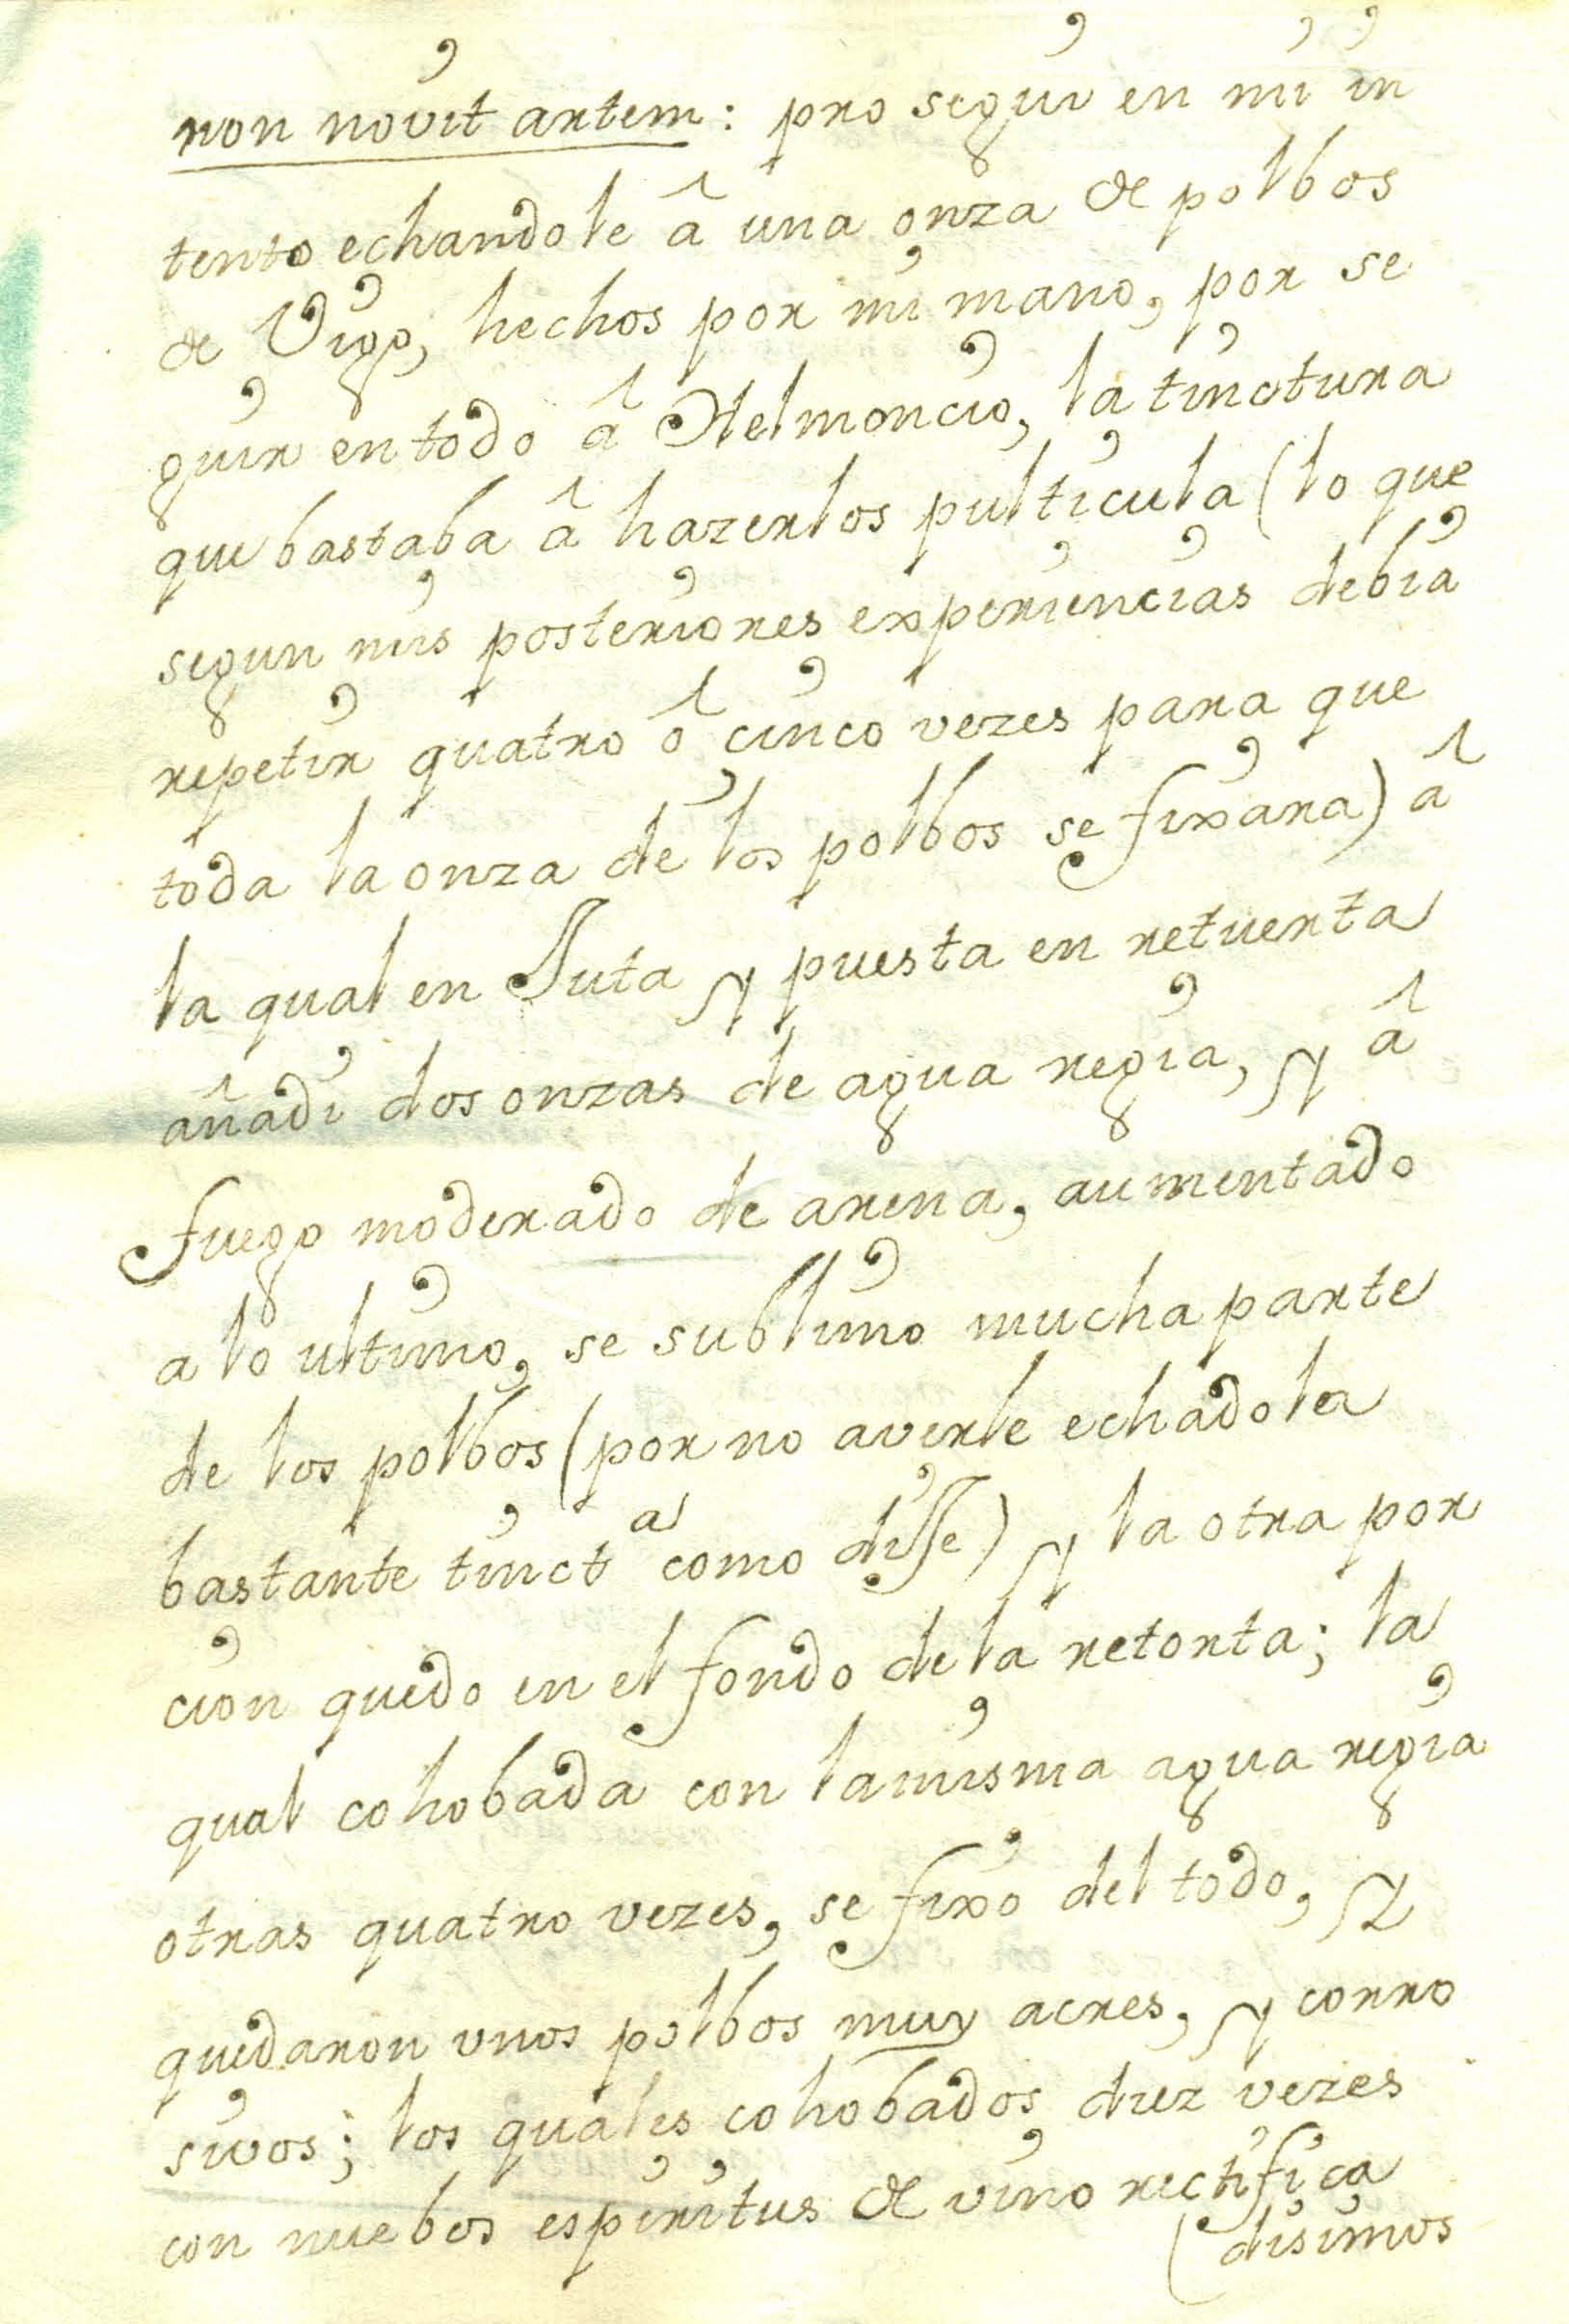 non novit artem: pro segui en mi in
tento echandole â una onza de polbos
de Vigo, hechos por mi mano, por se
guir en todo â Helmoncio, la tinctura
que bastaba â hazerlos pulticula (lo que
segun mis posteriores experiencias debia
repetir quatro ô cinco vezes para que
toda la onza de los polbos se fixara) â
la qual enjuta y puesta en retuerta
añadi dos onzas de agua regia, y â
fuego moderado de arena, aumentado
a lo ultimo, se sublimo mucha parte
de los polbos (por no averle echado la
bastante tinct.a como disse) y la otra por
cion quedo en el fondo de la retorta; la
qual cohobada con la misma agua regia
otras quatro vezes, se fixo del todo, y
quedaron unos polbos muy acres, y corro
sivos; los quales cohobados diez vezes
con nuebos espiritus de vino rectifica
(disimos